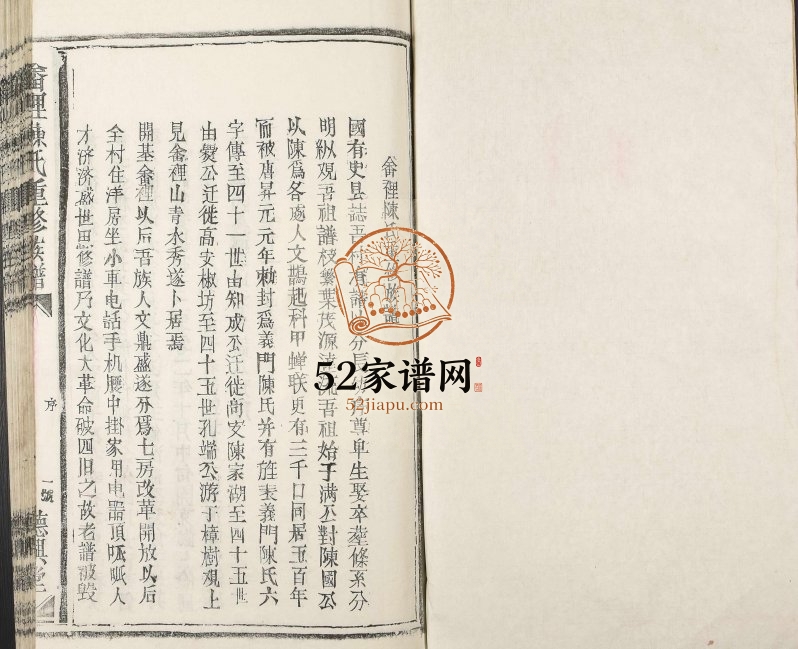 畲裡陳氏
國有史县誌吾村有譜以分長幼尊卑生娶卒葬條系分
明纵观吾祖譜枝繁葉茂源遠流吾祖始于满公對陳國公
以陳爲各處人文鵲起科甲蝉联更有三千口同居五百年
而被唐昇元元年勅封爲義門陳氏并有旌表義門陳氏六
字傳至四十一世由知成公迁徙高安陳家湖至四十五世
由燮公迁徙高安椒坊至四十五世孔端公游于樟樹观上
見畲裡山青水秀遂卜居焉
開基畲裡以后吾族人文鼎盛遂分爲七房改革開放以后
全村住洋房坐小車电話手机腰中掛家用电器頂呱呱人
才济济盛世思修譜乃文化大革命破四旧之故老譜被毁
畲裡陳氏重修族譜
序
一號
德興堂
52家谱网
52jiapu.com